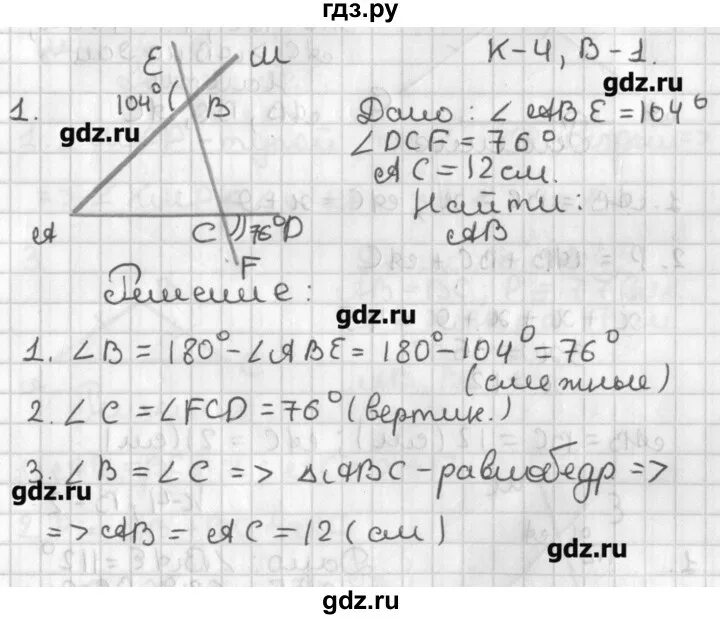 гдз.ру
К-4, В-1.
gdz.ru
1.
E
M
104°
B
A
C
76°
D
F
gdz.ru
Дано: ∠ABE = 104°
∠DCF = 76°
AC = 12 см.
Найти:
AB
Решение:
gdz.ru
1. ∠B = 180° - ∠ABE = 180° - 104° = 76°
(смежные)
2. ∠C = ∠FCD = 76° (вертик.)
3. ∠B = ∠C => ΔABC - равнобедр =>
gdz.ru
=> AB = AC = 12 (см)
gdz.ru
gdz.ru